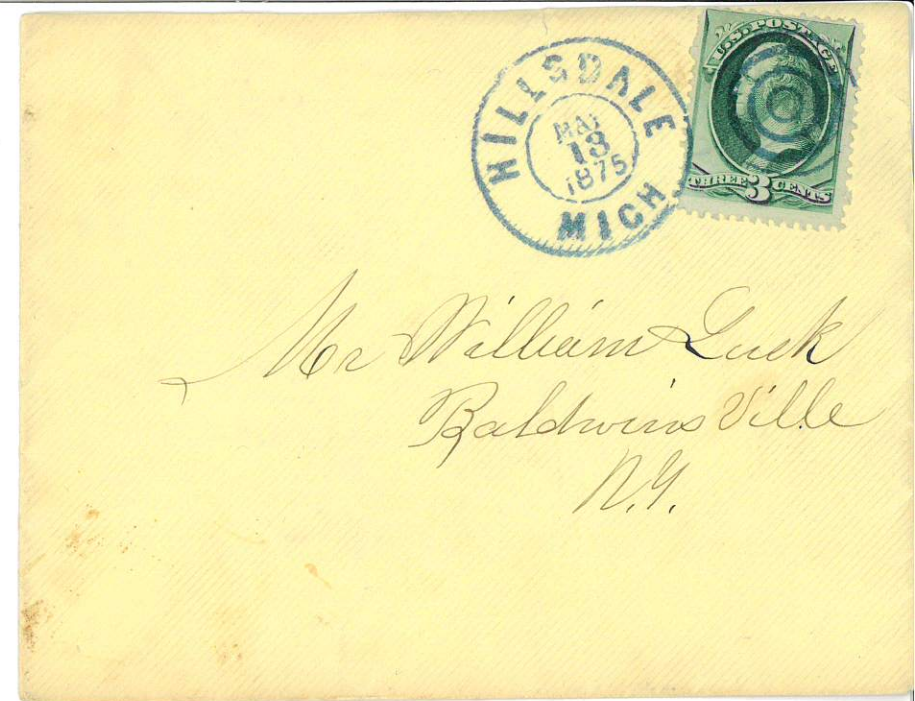 HILLSDALE
MAY
13
1875
MICH.
U.S. POSTAGE
THREE 3 CENTS
Mr William Lusk
Baldwins Ville
N.Y.